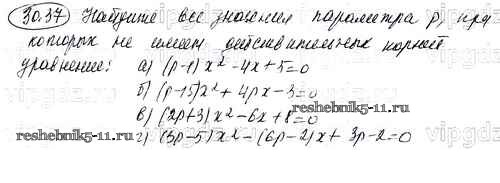 30.37 Найдите все значения параметра p, при
которых не имеет действительных корней
уравнение: а) (p-1)x²-4x+5=0
б) (p-15)x²+4px-3=0
в) (2p+3)x²-6x+8=0
reshebnik5-11.ru reshebnik5-11.ru
г) (3p-5)x²-(6p-2)x+3p-2=0